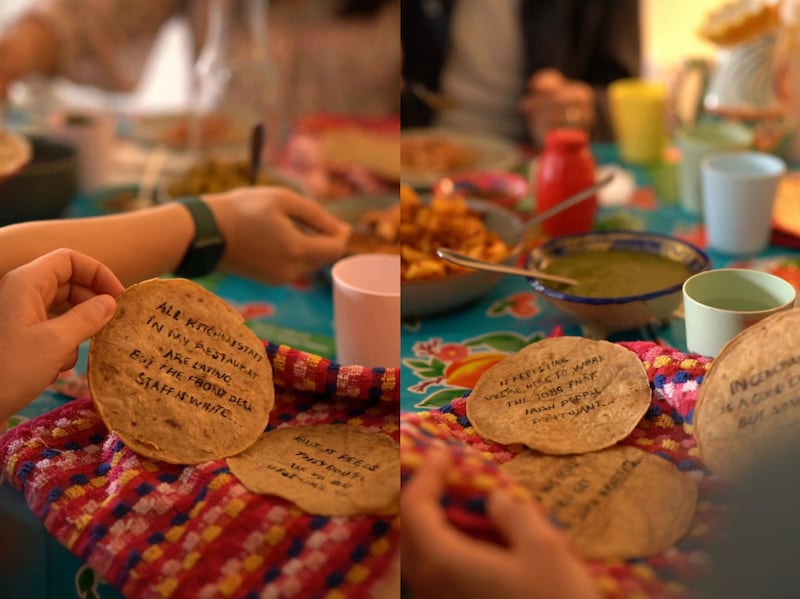 ALL KITCHEN STAFF
IN MY RESTAURAT
ARE LATINO
BUT THE FRONT DESK
STAFF IS WHITE
BUT IT FEELS
THEY DON'T
US TO BE
IT FEELS LIKE
WE'RE HERE TO WORK
THE JOBS THAT
IRISH PEOPLE
DON'T WANT
IN GENERAL
IS A GOOD
BUT